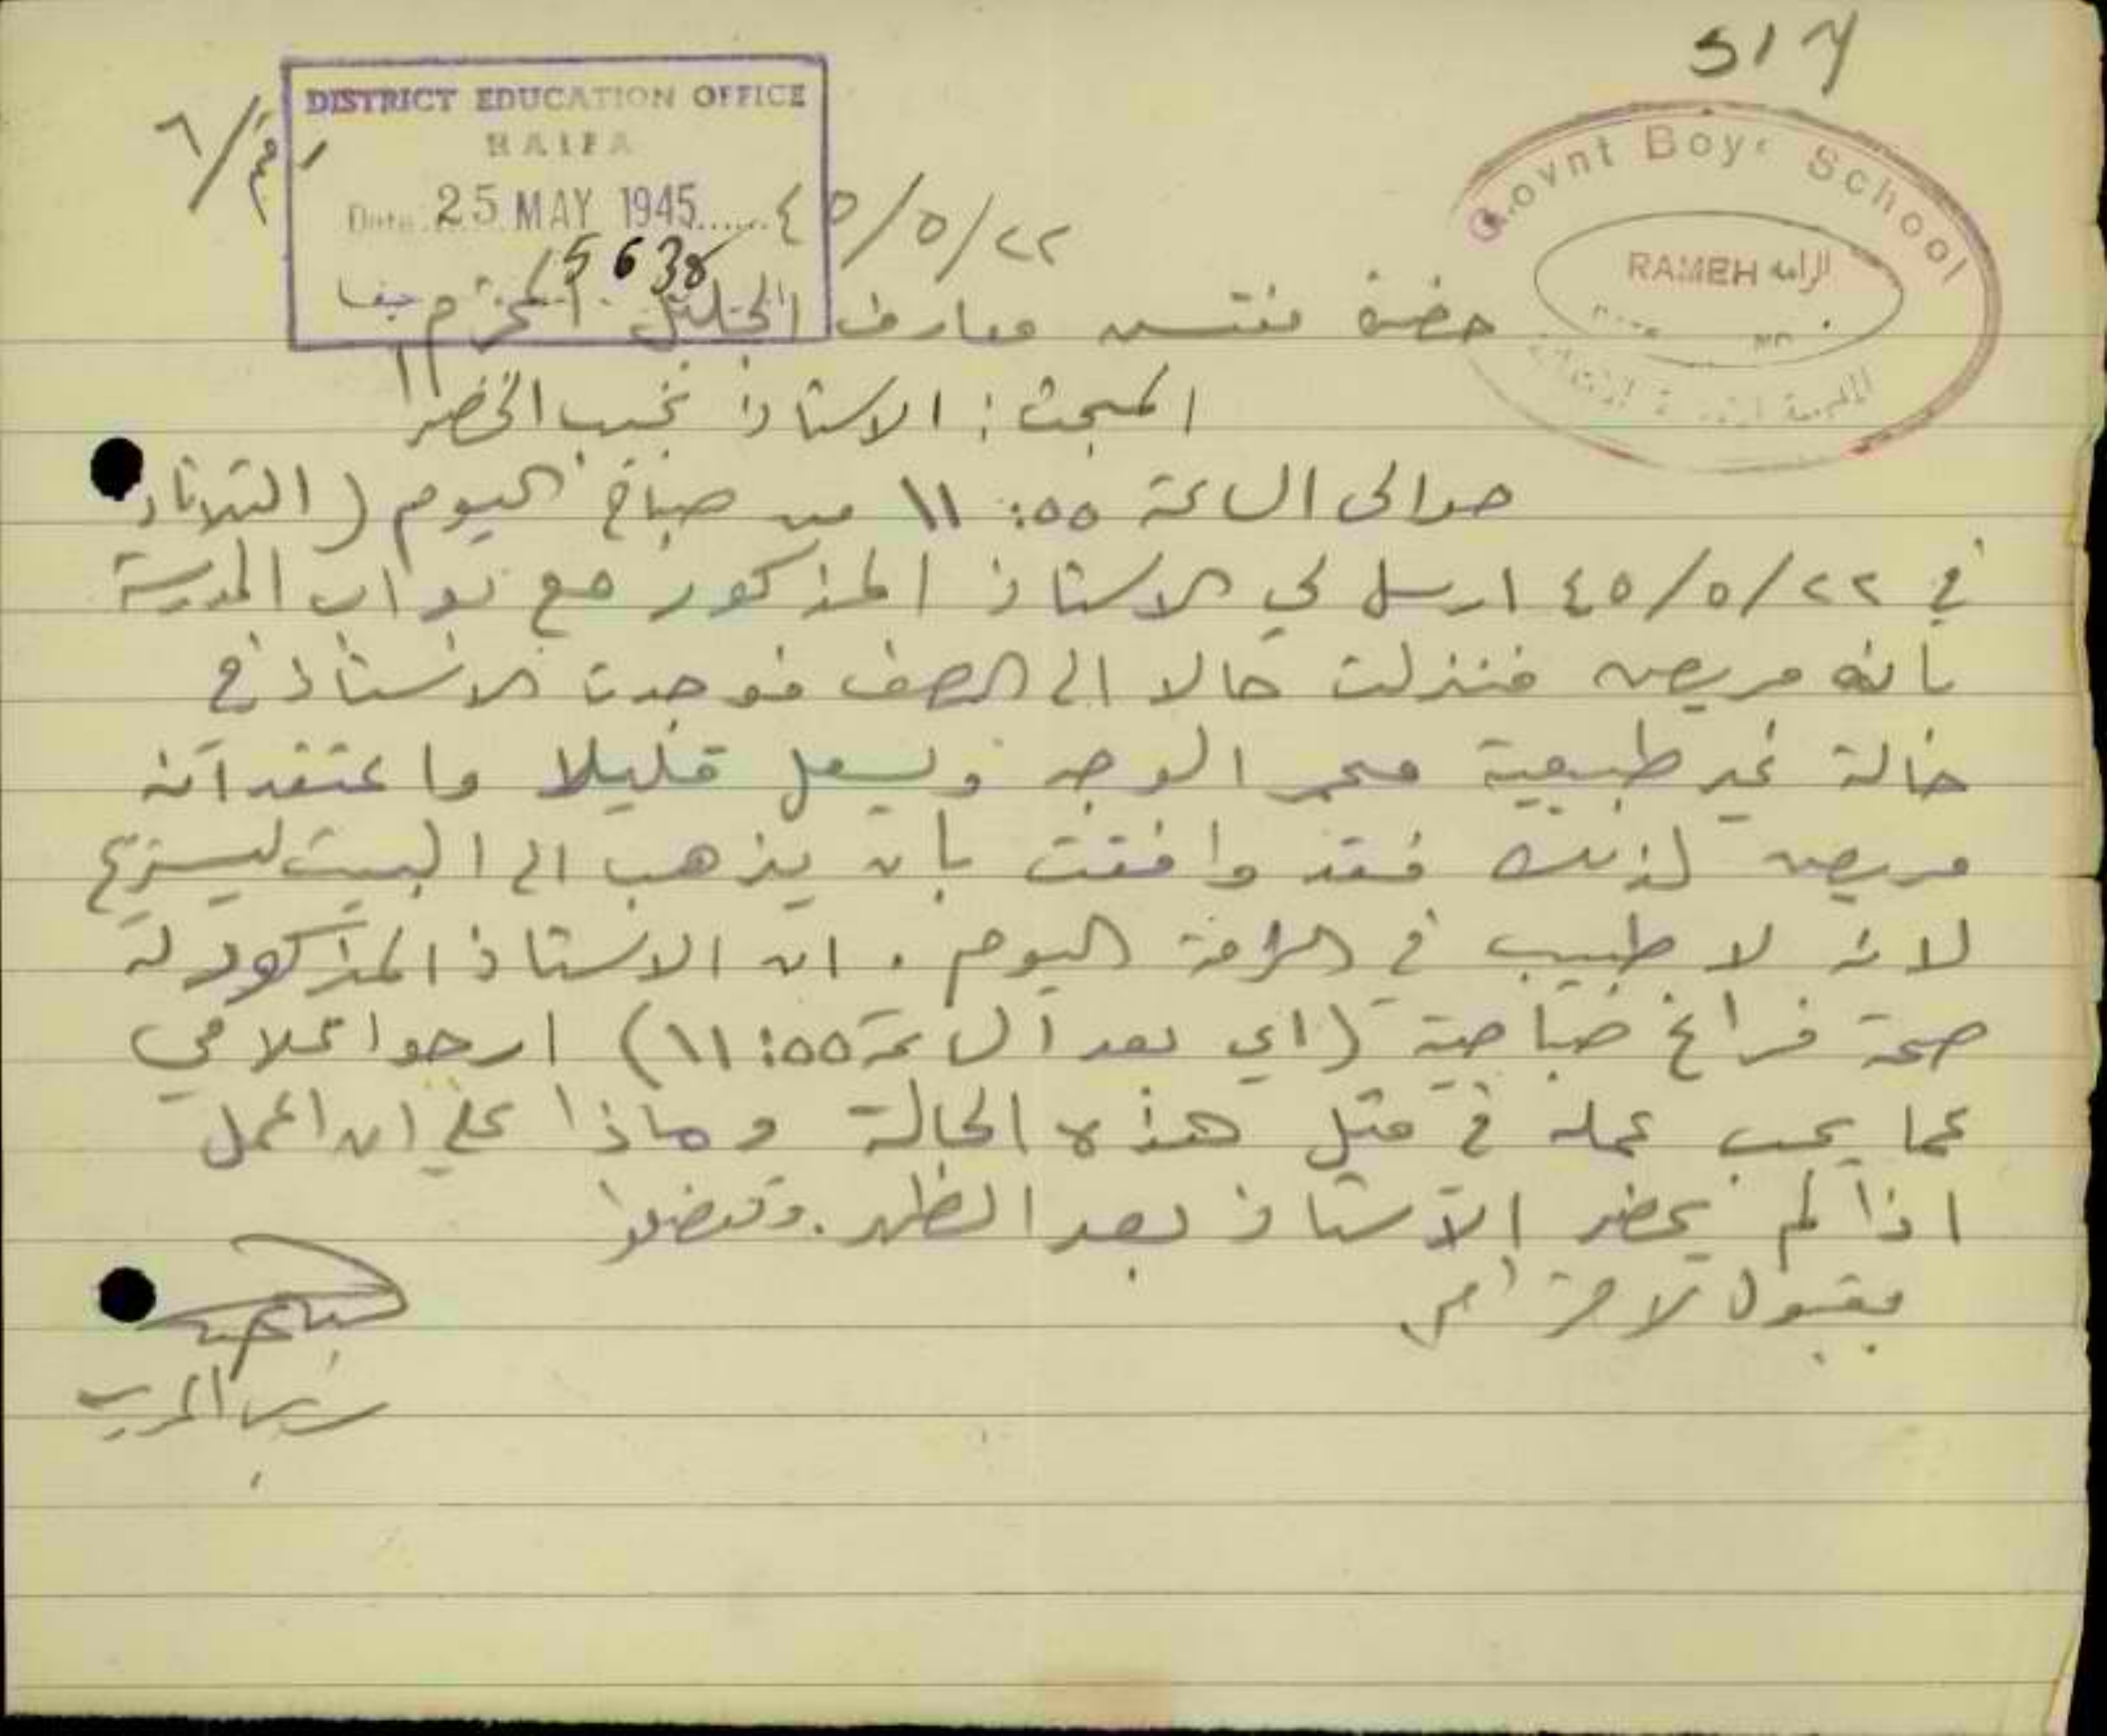 517
Govnt Boys School
RAMEH الرامه
DISTRICT EDUCATION OFFICE
HAIFA
Date 25 MAY 1945
5638
٤٥/٥/٢٢
حضرة مفتش معارف الجليل المحترم حيفا
المبحث: الاستاذ نجيب الخضرا
حوالى الساعة ١١:٥٥ من صباح اليوم (الثلاثاء
في ٤٥/٥/٢٢ ارسل لي الاستاذ المذكور مع بواب المدرسة
بانه مريض فنزلت حالا الى الصف فوجدت الاستاذ في
حالة غير طبيعية محمر الوجه ويسعل قليلا واعتقد انه
مريض لذلك فقد وافقت بان يذهب الى البيت ليستريح
لانه لا طبيب في الرامة اليوم. ان الاستاذ المذكور له
صحة فراغ صباحية (اي بعد الساعة ١١:٥٥) ارجو اعلامي
عما يجب عمله في مثل هذه الحالة وماذا علي ان اعمل
اذا لم يحضر الاستاذ بعد الظهر. وتفضلوا
بقبول احترامي